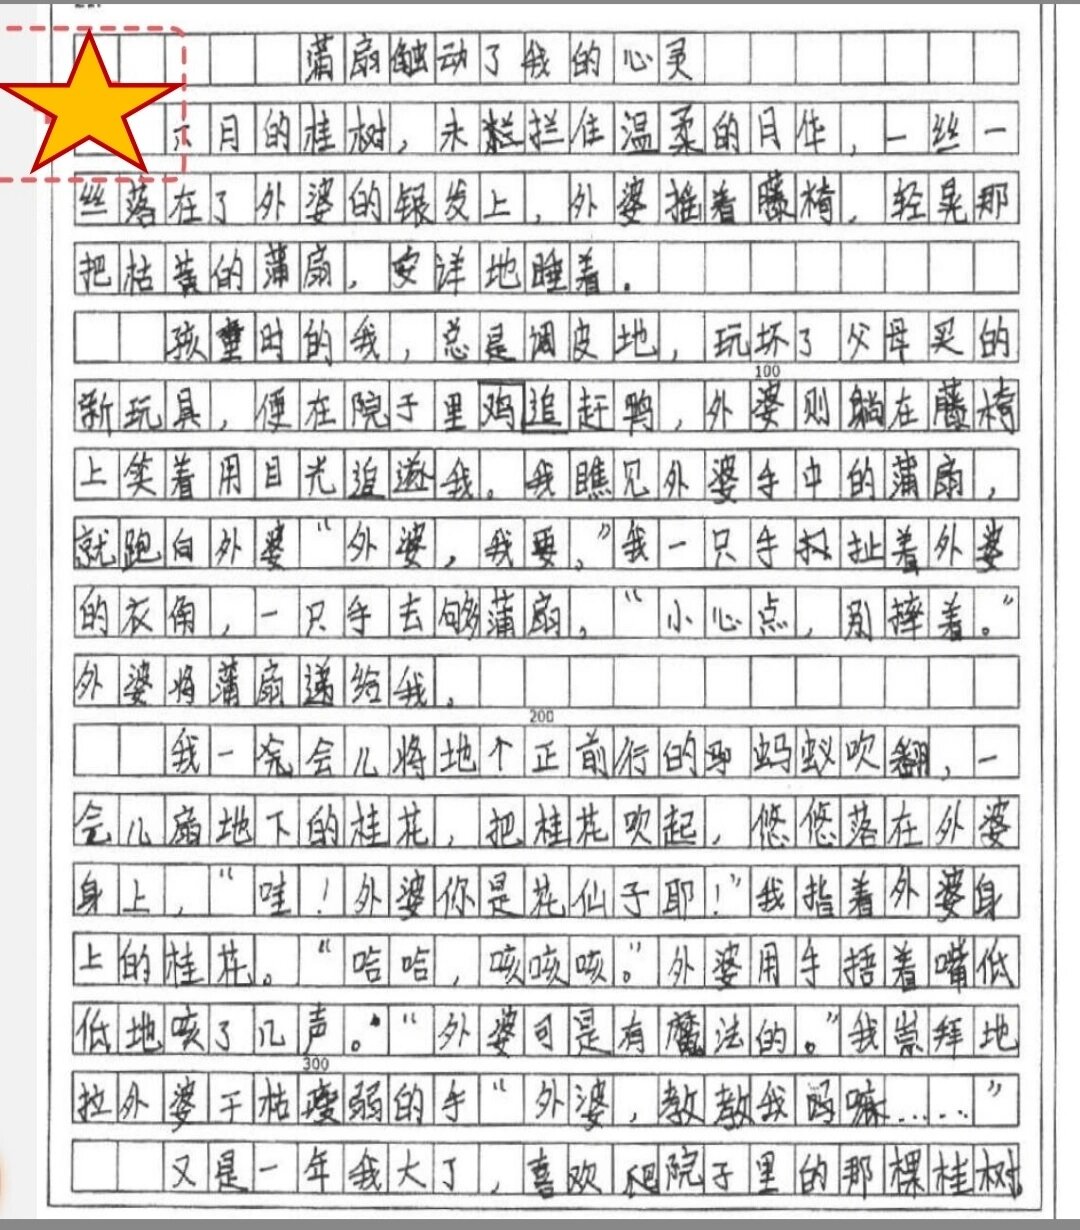 蒲扇触动了我的心灵
六月的桂树，永拦住温柔的月华，一丝一
丝落在了外婆的银发上，外婆摇着藤椅，轻晃那
把枯黄的蒲扇，安详地睡着。
孩童时的我，总是调皮地，玩坏了父母买的
100
新玩具，便在院子里鸡追赶鸭，外婆则躺在藤椅
上笑着用目光追逐我。我瞧见外婆手中的蒲扇，
就跑向外婆“外婆，我要。”我一只手扯着外婆
的衣角，一只手去够蒲扇，“小心点，别摔着。”
外婆将蒲扇递给我。
200
我一会儿将地个正前行的蚂蚁吹翻，一
会儿扇地下的桂花，把桂花吹起，悠悠落在外婆
身上，“哇！外婆你是花仙子耶！”我指着外婆身
上的桂花。“哈哈，咳咳咳。”外婆用手捂着嘴低
低地咳了几声。“外婆可是有魔法的。”我崇拜地
300
拉外婆干枯瘦弱的手“外婆，教教我吗嘛……”
又是一年我大了，喜欢爬院子里的那棵桂树